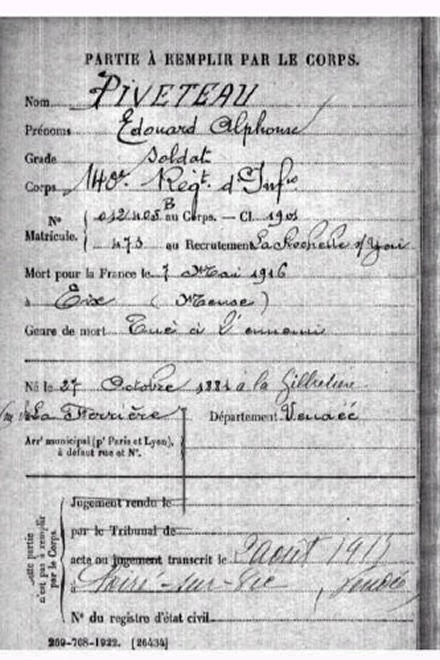 PARTIE À REMPLIR PAR LE CORPS.
Nom PIVETEAU
Prénoms Edouard Alphonse
Grade Soldat
Corps 140e Régt. d'Infie
N° Matricule. { au Corps. — Cl. 1901
473 au Recrutement La Roche s/Yon
Mort pour la France le 7 Mai 1916
à Eix (Meuse)
Genre de mort Tué à l'ennemi
Né le 27 Octobre 1881 à la
La Ferrière Département Vendée
Arrt municipal (pr Paris et Lyon),
à défaut rue et N°.
Cette partie n'est pas à remplir par le Corps.
Jugement rendu le
par le Tribunal de
acte ou jugement transcrit le août
à -sur-Vie, Vendée
N° du registre d'état civil
269-708-1922. [26434]